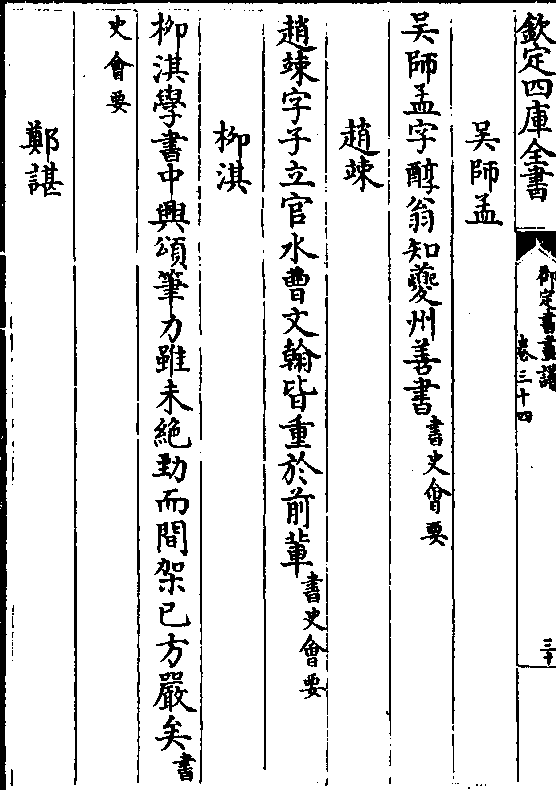 欽定四庫全書
御定書畫譜
卷三十四
三十
吳師孟
吳師孟字醇翁知夔州善書書史會要
趙竦
趙竦字子立官水曹文翰皆重於前輩書史會要
柳淇
柳淇學書中興頌筆力雖未絶勁而間架已方嚴矣書
史會要
鄭諶